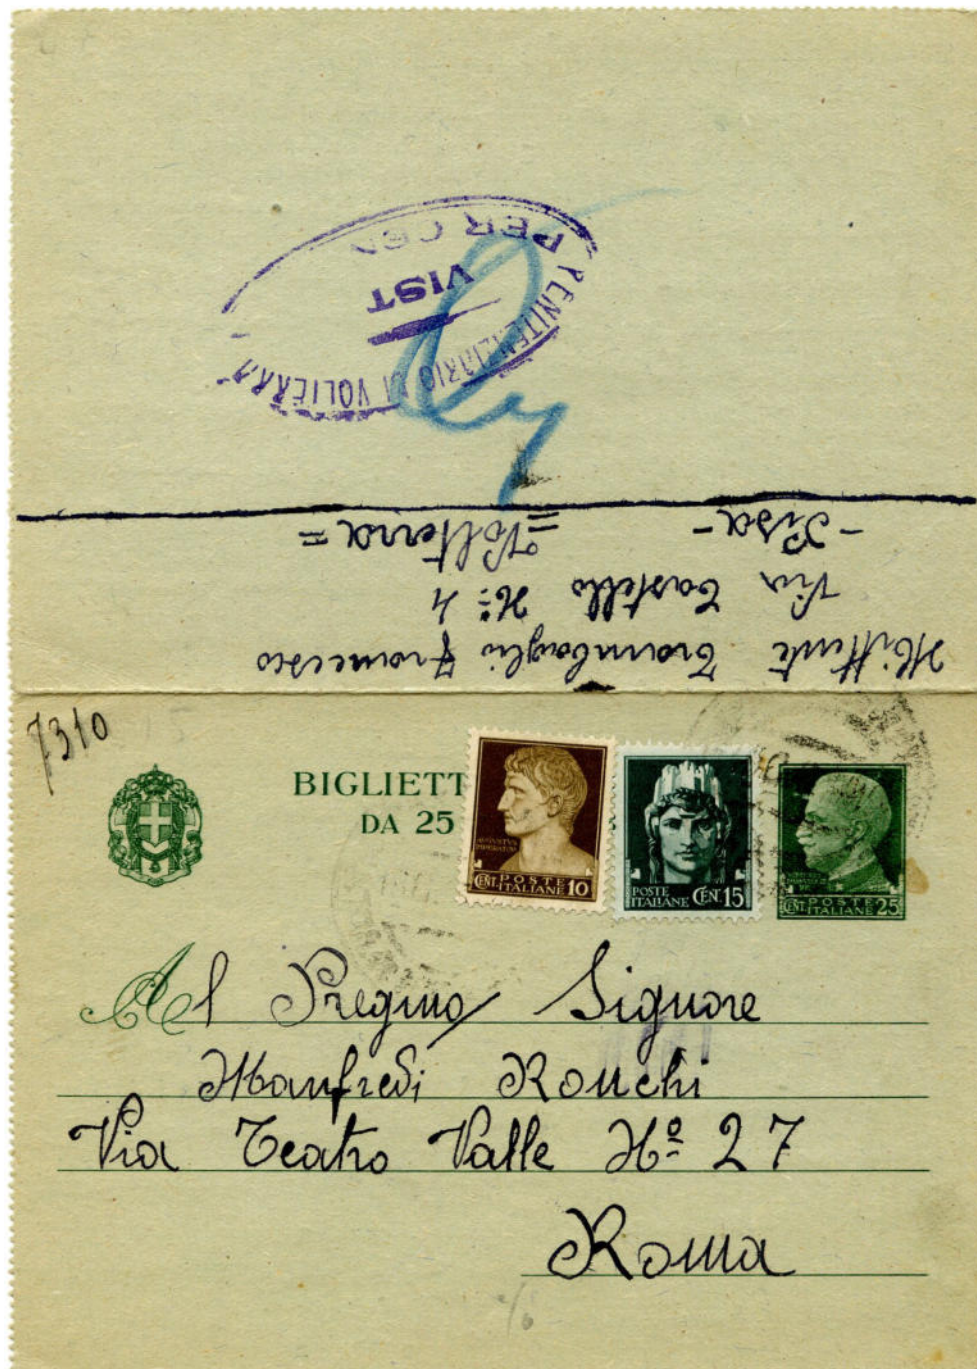 PENITENZIARIO DI VOLTERRA
VIST
PER CEN
Mittente Trambaglio Francesco
Via Castello Nº 4
=Volterra=
-Pisa-
7310
BIGLIETT
DA 25
AVGVSTVS
IMPERATOR
POSTE
CENT. ITALIANE 10
POSTE
ITALIANE CENT. 15
POSTE
CENT. ITALIANE 25
Al Pregmo Signore
Manfredi Ronchi
Via Teatro Valle Nº 27
Roma